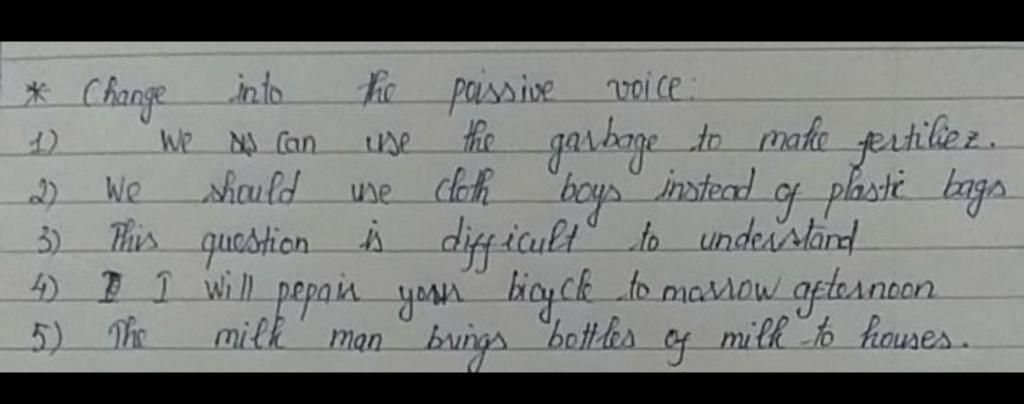 * Change into the paissive voice:
1) We can use the garbage to make fertiliez.
2) We should use cloth boys instead of plastic bags
3) This question is difficult to understand
4) I will pepair your bicycle to marrow afternoon
5) The milk man brings bottles of milk to houses.